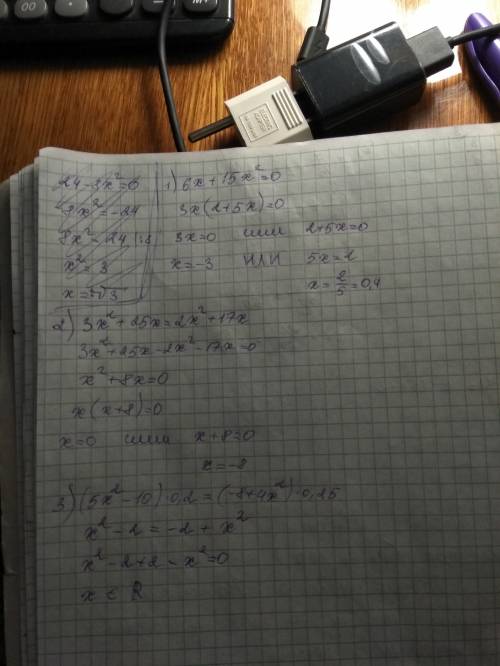 24-3x²=0
8x²=-24
8x²=24 |:8
x²=3
x=√3
1) 6x+15x²=0
3x(2+5x)=0
3x=0 или 2+5x=0
x=-3 ИЛИ 5x=2
x=2/5=0,4
2) 3x²+25x=2x²+17x
3x²+25x-2x²-17x=0
x²+8x=0
x(x+8)=0
x=0 или x+8=0
x=-8
3) (5x²-10)·0,2=(-8+4x²)·0,25
x²-2=-2+x²
x²-2+2-x²=0
x ∈ R